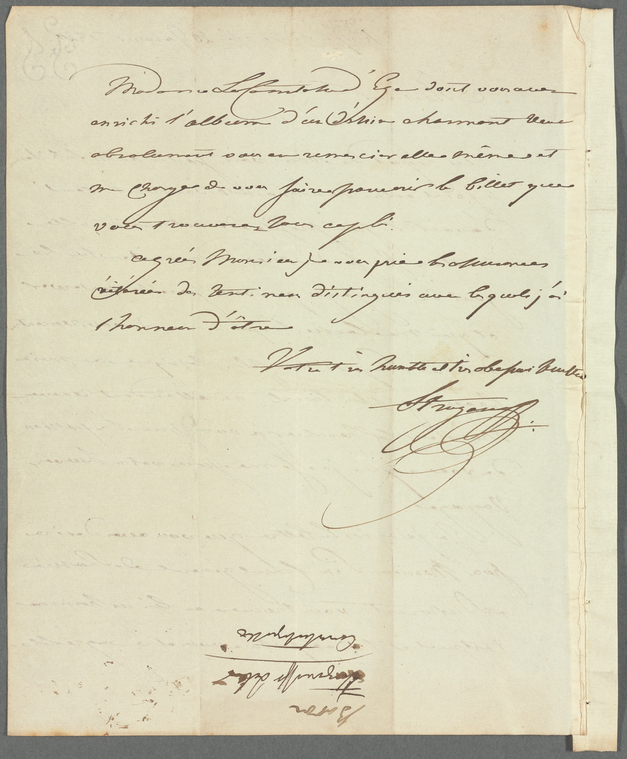 Madame La Comtesse d'Ega dont vous avez
enrichi l'album d'un dessin charmant veut
absolument vous en remercier elle même et
me charge de vous faire parvenir le billet que
vous trouverez sous ce pli.
agréez Monsieur je vous prie les assurances
réitérées des sentimens distingués avec lesquels j'ai
l'honneur d'être
Votre très humble et très obeissant serviteur
Stroganoff
Constantinople
Stroganoff
Baron